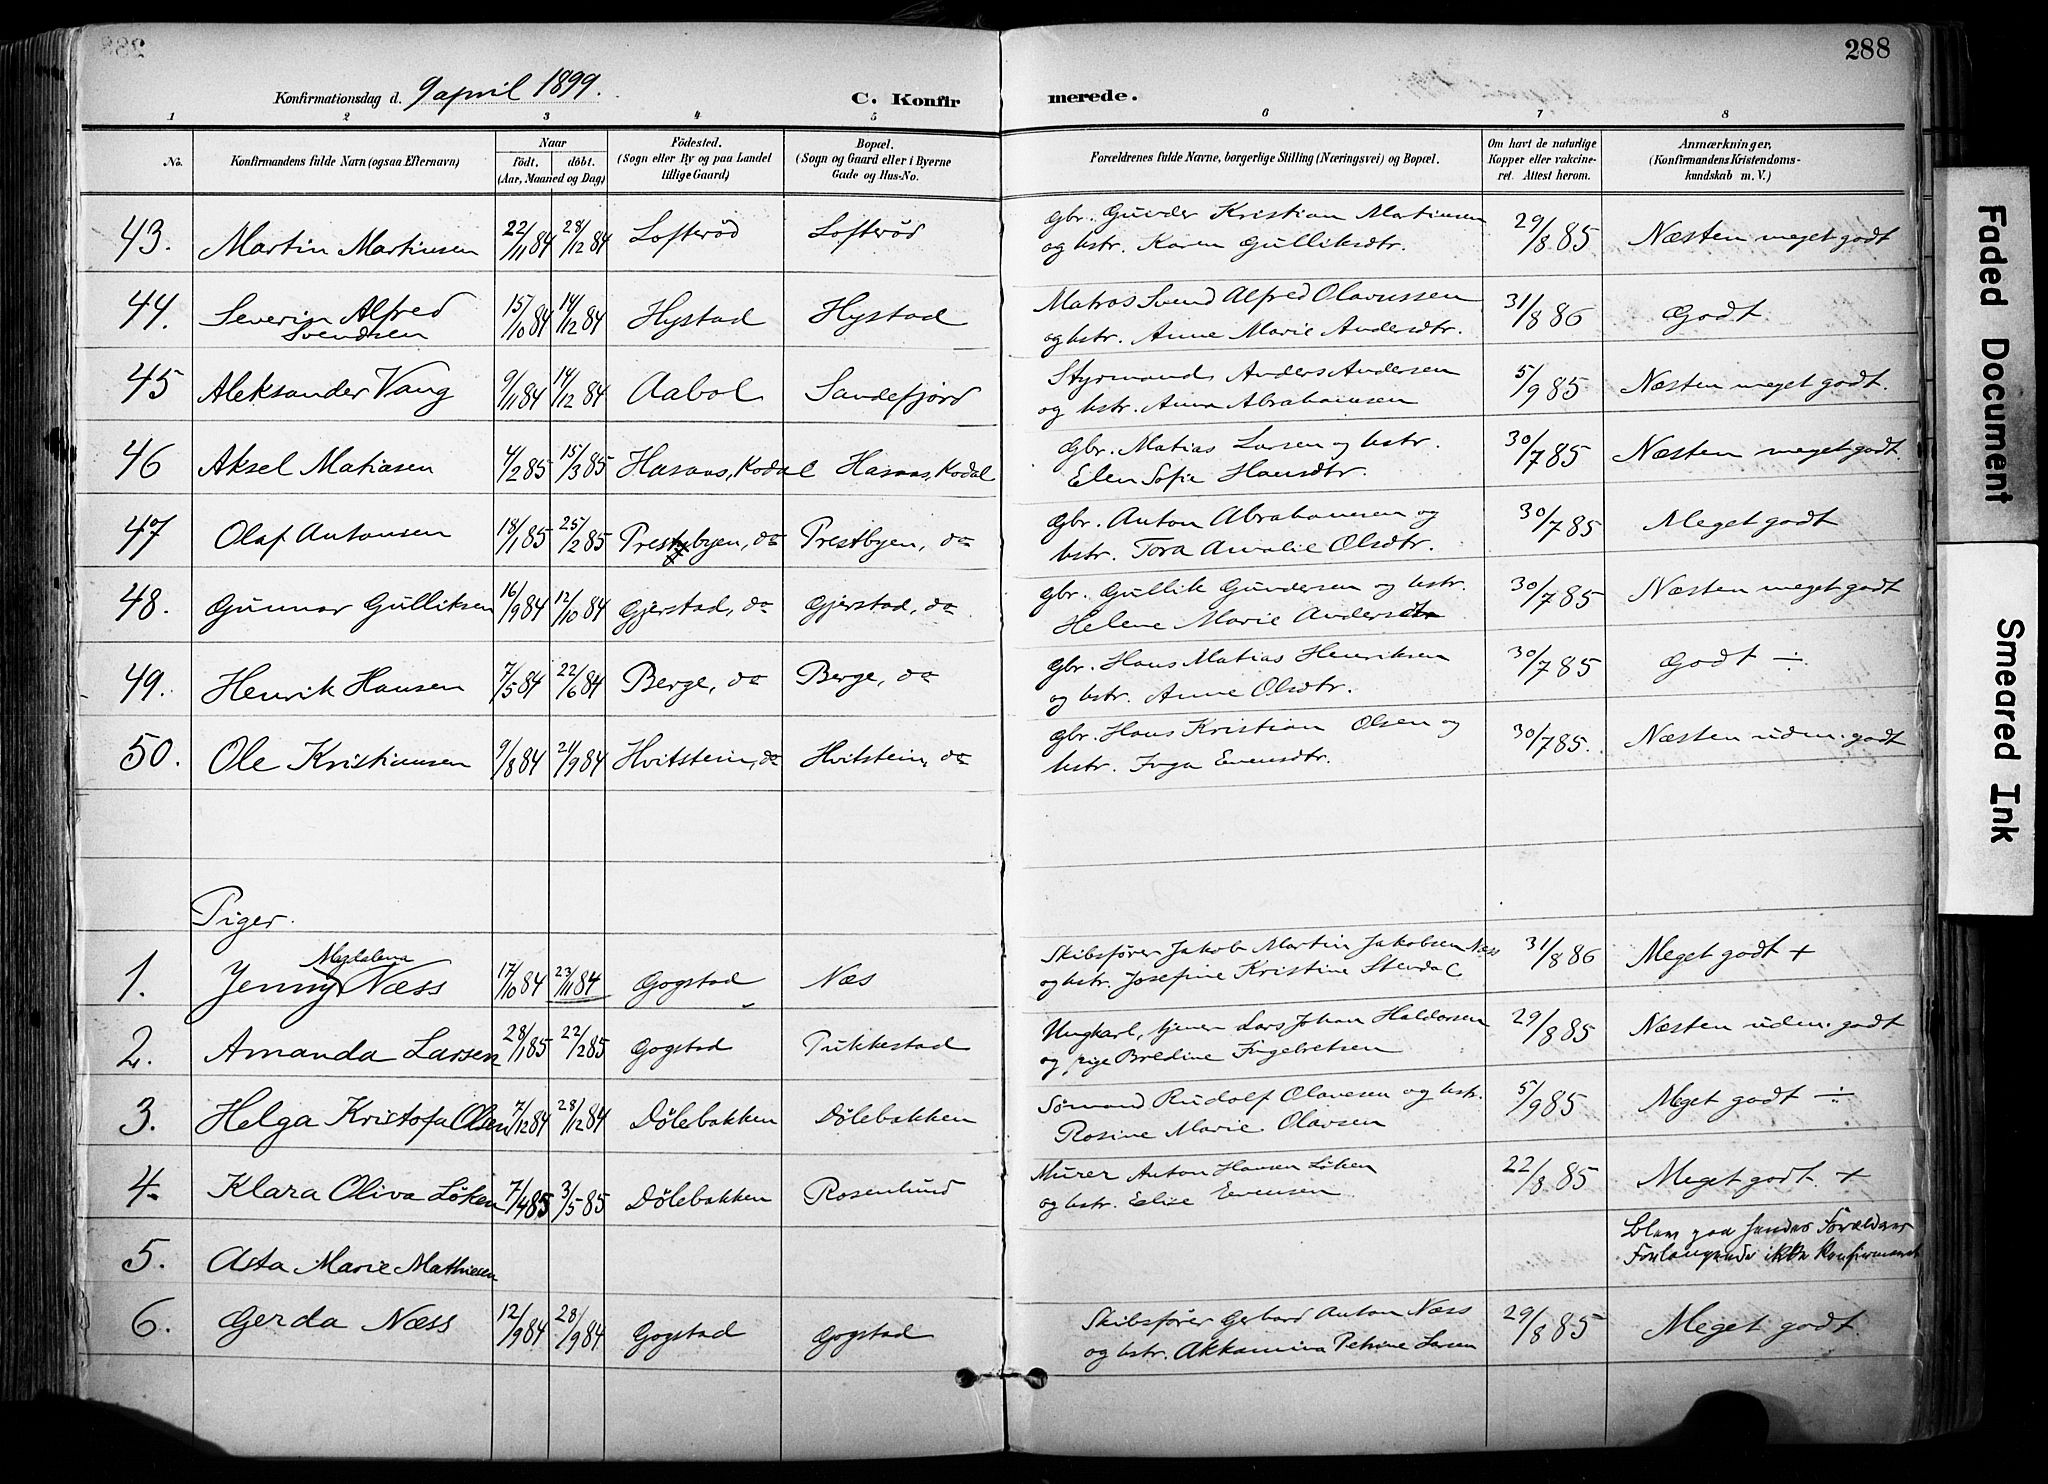 288
Konfirmationsdag d. 9 april 1899.
C. Konfirmerede.
1 2 3 4 5 6 7 8
No.
Konfirmandens fulde Navn (ogsaa Efternavn)
Naar
født. døbt.
(Aar, Maaned og Dag)
Fødested.
(Sogn eller By og paa Landet
tillige Gaard)
Bopæl.
(Sogn og Gaard eller i Byerne
Gade og Hus-No.
Forældrenes fulde Navne, borgerlige Stilling (Næringsvei) og Bopæl.
Om havt de naturlige
Kopper eller vakcine-
ret. Attest herom.
Anmærkninger,
(Konfirmandens Kristendoms-
kundskab m. V.)
43. Martin Martinsen 22/11 84 28/12 84 Lofterød Lofterød
Gbr. Gunder Kristian Martinsen
og hstr. Karen Gulliksdtr. 29/8 85 Næsten meget godt
44. Severin Alfred
Svendsen 15/10 84 14/12 84 Hystad Hystad
Matros Svend Alfred Olavussen
og hstr. Anne Marie Andersdtr. 31/8 86 Godt
45 Aleksander Vang 9/11 84 14/12 84 Aabol Sandefjord
Styrmand Anders Andersen
og hstr. Anna Abrahamsen 5/9 85 Næsten meget godt.
46 Aksel Matiasen 4/2 85 15/3 85 Hasaas, Kodal Hasaas, Kodal
Gbr. Matias Larsen og hstr.
Elen Sofie Hansdtr. 30/7 85 Næsten meget godt.
47 Olaf Antonsen 18/1 85 25/2 85 Prestbyen, do Prestbyen, do
Gbr. Anton Abrahamsen og
hstr. Tora Amalie Olsdtr. 30/7 85 Meget godt
48. Gunnar Gulliksen 16/9 84 12/10 84 Gjerstad, do Gjerstad, do
Gbr. Gullik Gundersen og hstr.
Helene Marie Andersdtr 30/7 85 Næsten meget godt
49. Henrik Hansen 7/5 84 22/6 84 Berge, do Berge, do
Gbr. Hans Matias Henriksen
og hstr. Anne Olsdtr. 30/7 85 Godt ÷
50. Ole Kristiansen 9/8 84 21/9 84 Hvitstein, do Hvitstein, do
Gbr. Hans Kristian Olsen og
hstr. Inga Evensdtr. 30/7 85. Næsten udm. godt
Piger.
1. Jenny Magdalena Næss 17/10 84 23/11 84 Gogstad Næs
Skibsfører Jakob Martin Jakobsen Næss
og hstr. Josefine Kristine Stendal 31/8 86 Meget godt +
2. Amanda Larsen 28/1 85 22/2 85 Gogstad Pukkestad
Ungkarl, tjener Lars Johan Haldorsen
og pige Bredine Ingebretsen 29/8 85 Næsten udm. godt
3. Helga Kristofa Olsen 7/12 84 28/12 84 Dølebakken Dølebakken
Sømand Rudolf Olavesen og hstr.
Rosine Marie Olavsen 5/9 85 Meget godt ÷
4. Klara Oliva Løken 7/4 85 3/5 85 Dølebakken Rosenlund
Murer Anton Hansen Løken
og hstr. Elise Evensen 22/8 85 Meget godt. +
5. Asta Marie Mathiesen
Blev paa hendes Forældres
Forlangende ikke konfirmeret
6. Gerda Næss 12/9 84 28/9 84 Gogstad Gogstad
Skibsfører Gerhard Anton Næss
og hstr. Akkamina Petrine Larsen 29/8 85 Meget godt.
Faded Document
Smeared Ink